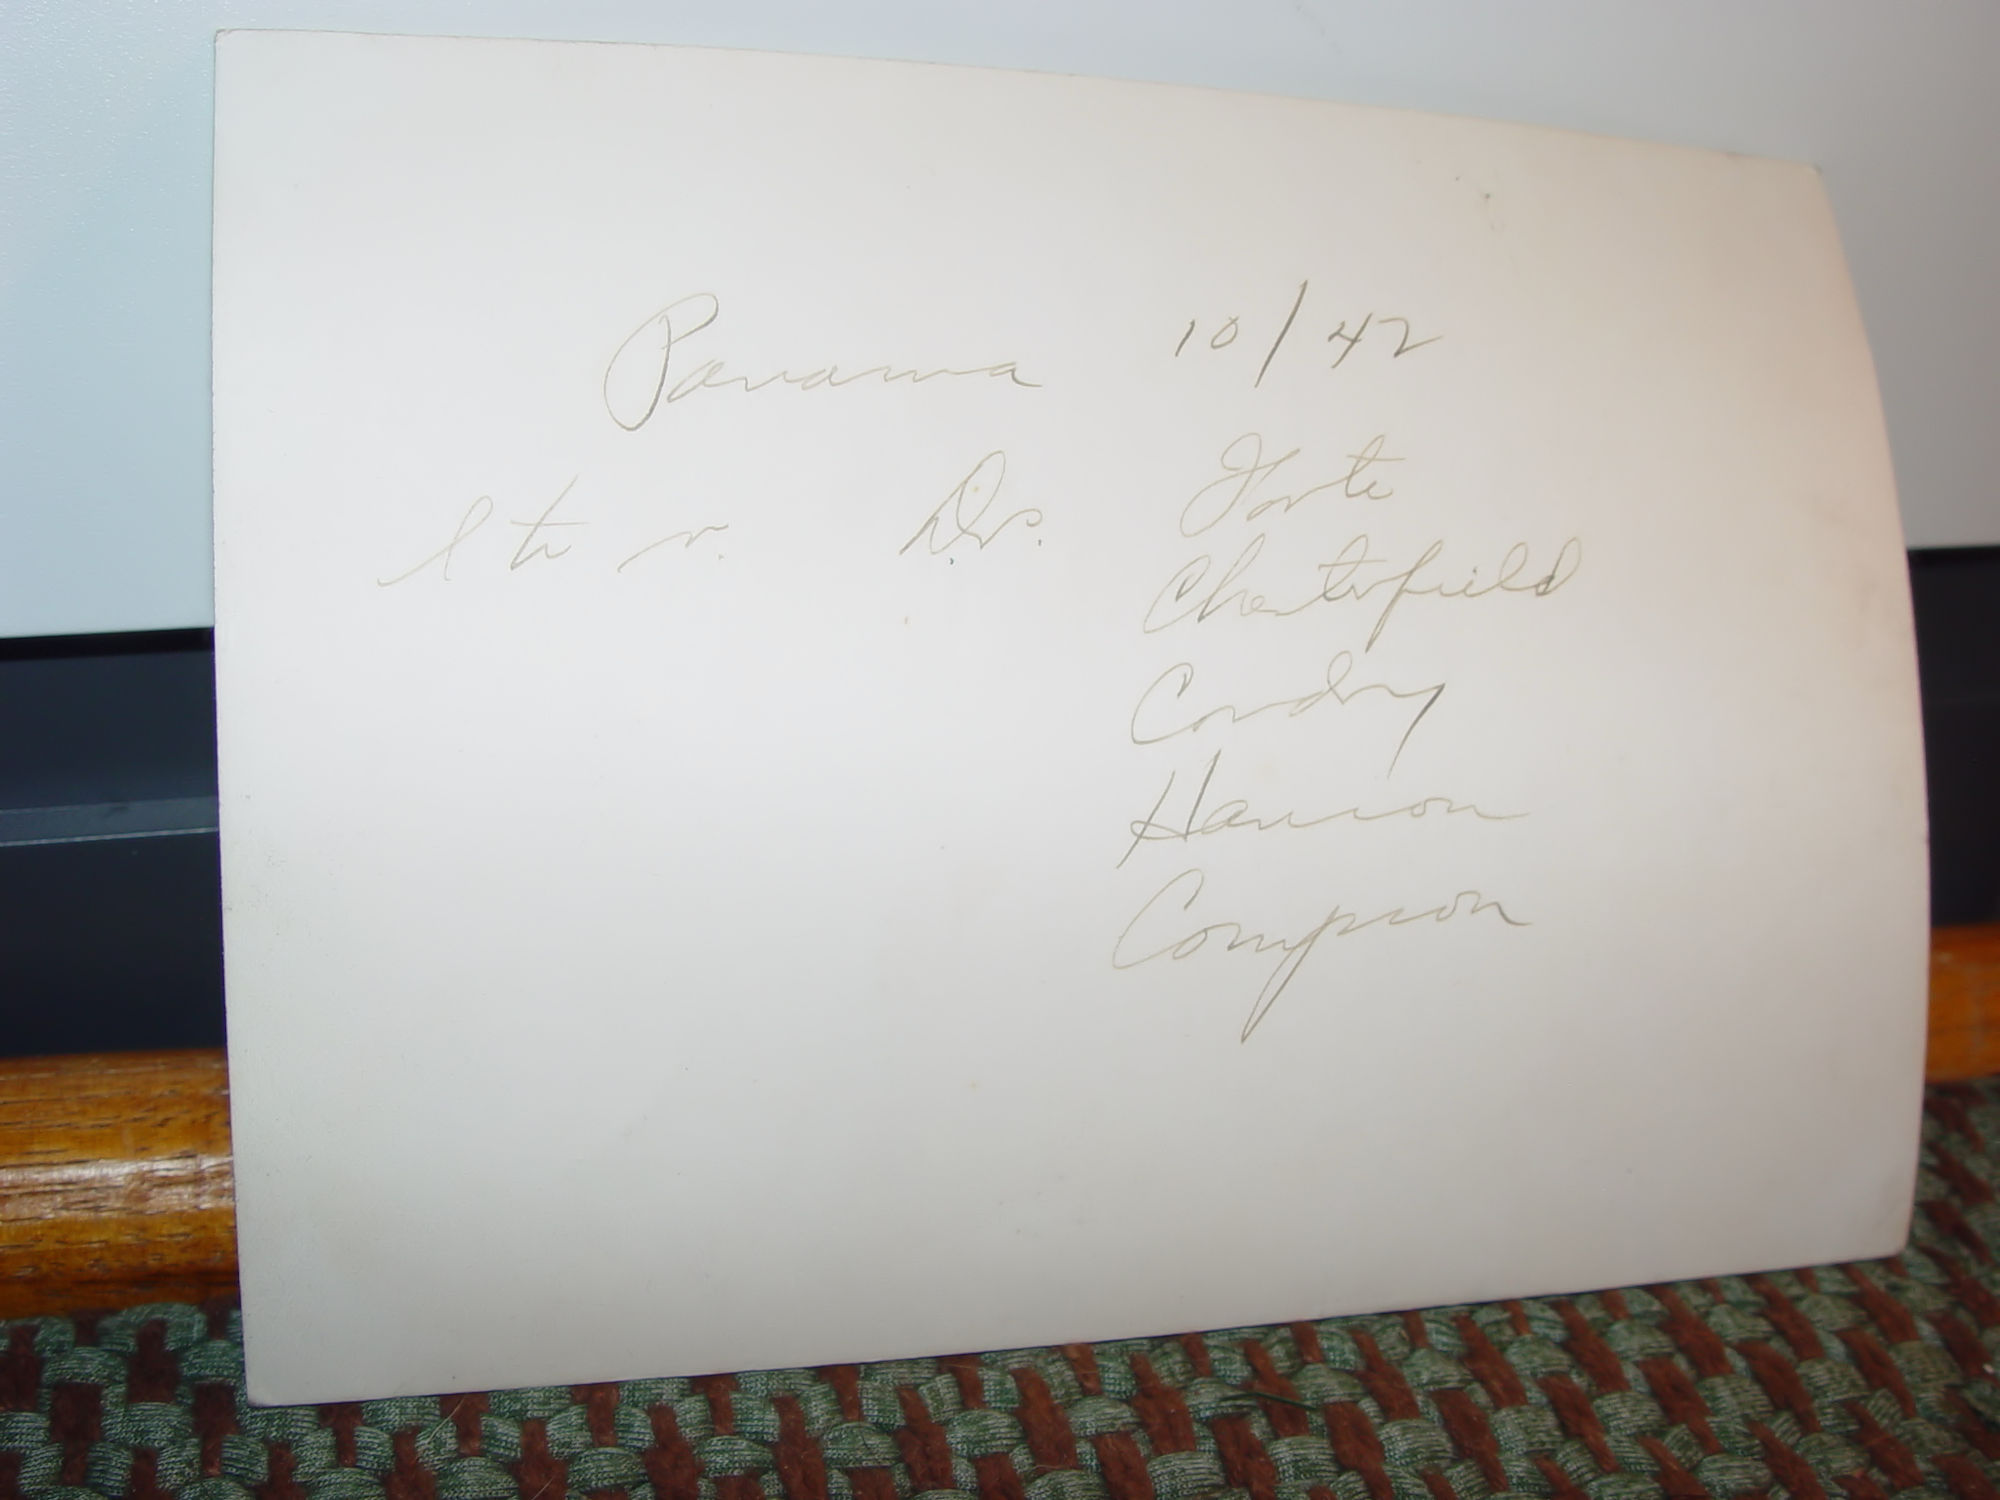 Panama 10/42
l to r. Drs. Forte
Chesterfield
Condry
Hanson